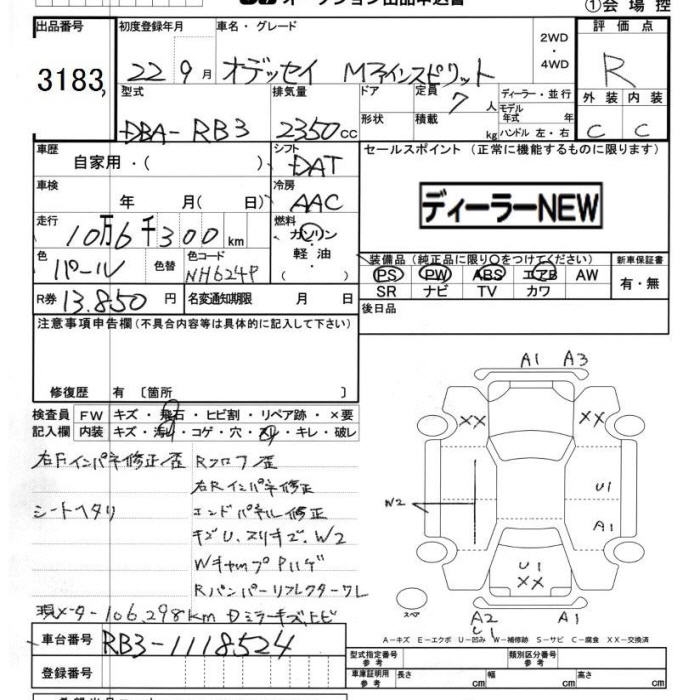 オークション出品申込書 ①会場控
出品番号 初度登録年月 車名・グレード 2WD ・ 4WD 評価点
3183 22 9月 オデッセイ Mファインスピリット R
型式 排気量 ドア 定員 7人 ディーラー・並行 外装 内装
DBA-RB3 2350cc 形状 積載 kg モデル年式 年 ハンドル 左・右 C C
車歴 自家用・( ) シフト DAT セールスポイント (正常に機能するものに限ります)
車検 年 月(日) 冷房 AAC ディーラーNEW
走行 10万6千300km 燃料 ガソリン・軽油・( )
色 パール 色替 色コード NH624P
装備品(純正品に限り○をつけてください) 新車保証書
PS PW ABS エアB AW 有・無
SR ナビ TV カワ
R券 13.850円 名変通知期限 月 日 後日品
注意事項申告欄(不具合内容等は具体的に記入して下さい)
修復歴 有 〔箇所 〕
検査員 FW キズ・飛石・ヒビ割・リペア跡・×要
記入欄 内装 キズ・汚れ・コゲ・穴・スレ・キレ・破レ
右Fインパネ修正歪 Rフロア歪
右Rインパネ修正
シートヘタリ エンドパネル修正
キズU、スリキズ、W2
WキャップPハゲ
Rバンパーリフレクターワレ
現メーター106,298km Dミラーキズ、トビ
A1 A3
XX XX
U1
W2
A1
U1
XX
スペア
A2 A1
U1
A-キズ E-エクボ U-凹み W-補修跡 S-サビ C-腐食 XX-交換済
車台番号 RB3-1118524
登録番号
型式指定番号 参考 類別区分番号 参考
車庫証明用 参考 長さ cm 幅 cm 高さ cm